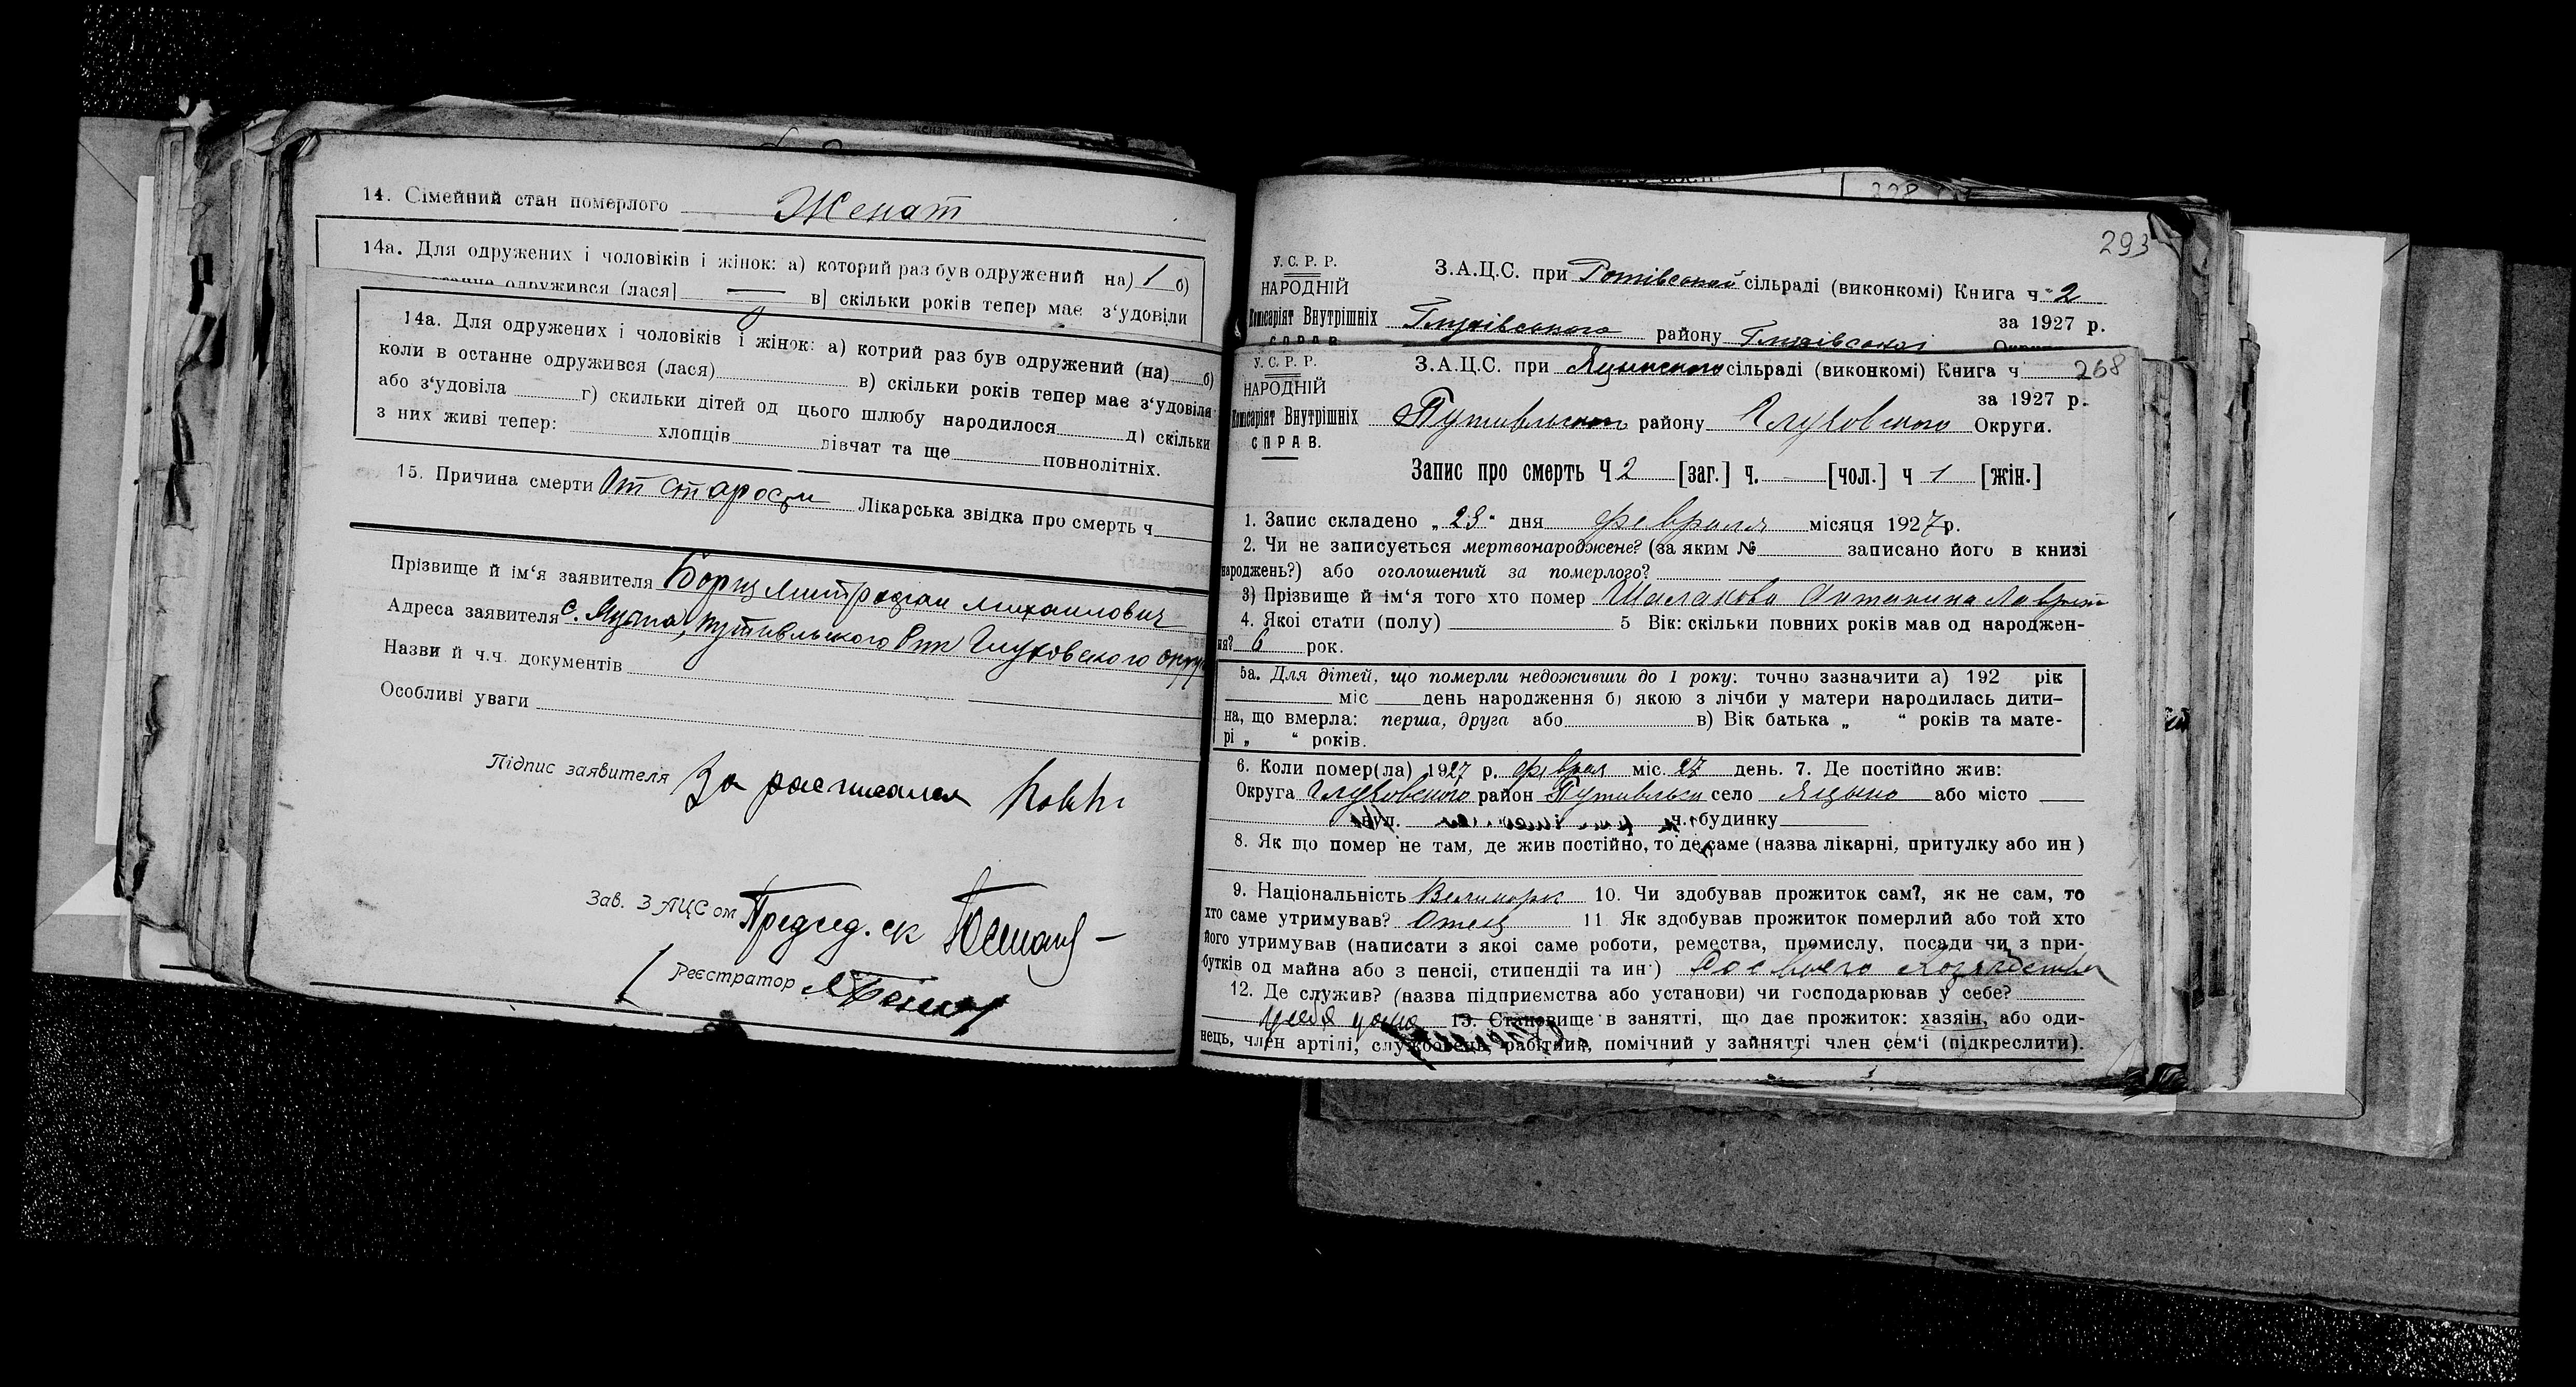 14. Сімейний стан померлого Женат
14а. Для одружених і чоловіків і жінок: а) которий раз був одружений на) 1 б)
одружився (лася] — в] скільки років тепер має з‘удовіли
14а. Для одружених і чоловіків і жінок: а) котрий раз був одружений (на) б)
коли в останне одружився (лася) в) скільки років тепер має з‘удовіла
або з‘удовіла г) скильки дітей од цього шлюбу народилося д) скільки
з них живі тепер: хлопців дівчат та ще повнолітніх.
15. Причина смерти От старости Лікарська звідка про смерть ч
Прізвище й ім‘я заявителя Митрофан Михаилович
Адреса заявителя с. Яцына, Путивльского Глуховского округ
Назви й ч.ч. документів
Особливі уваги
Підпис заявителя За расписался
Зав. ЗАЦСом Председ. ск
Реєстратор
293
У. С. Р. Р.
НАРОДНІЙ
Комісаріят Внутрішніх
СПРАВ
З.А.Ц.С. при сільраді (виконкомі) Книга ч 2
за 1927 р.
Глухівського району Глухівської
У. С. Р. Р.
НАРОДНІЙ
Комісаріят Внутрішніх
СПРАВ.
З.А.Ц.С. при Яцынского сільраді (виконкомі) Книга ч 268
за 1927 р.
Путивльского району Глуховского Округи.
Запис про смерть Ч 2 [заг.] ч. [чол.] ч 1 [жін.]
1. Запис складено „ 23 “ дня февраля місяця 1927 р.
2. Чи не записується мертвонароджене? (за яким № записано його в книзі
народжень?) або оголошений за померлого?
3) Прізвище й ім‘я того хто помер Шалакова Антанина Лаврент
4. Якої стати (полу) 5 Вік: скільки повних років мав од народжен-
ня? 6 рок.
5а. Для дітей, що померли недоживши до 1 року: точно зазначити а) 192 рік
міс день народження б) якою з лічби у матери народилась дити-
на, що вмерла: перша, друга або в) Вік батька „ “ років та мате-
рі „ “ років.
6. Коли помер(ла) 1927 р. феврал міс. день. 7. Де постійно жив:
Округа Глуховского район Путивльск село Яцыно або місто
вул. ч. будинку
8. Як що помер не там, де жив постійно, то де саме (назва лікарні, притулку або ин )
9. Національність Великорос 10. Чи здобував прожиток сам?, як не сам, то
хто саме утримував? Отец 11 Як здобував прожиток померлий або той хто
його утримував (написати з якої саме роботи, ремества, промислу, посади чи з при-
бутків од майна або з пенсії, стипендії та ин ) со своего хозяйства
12. Де служив? (назва підприємства або установи) чи господарював у себе?
у себя дома 13. Становище в занятті, що дає прожиток: хазяїн, або оди-
нець, член артілі, службовець, рабітник, помічний у зайнятті член сем‘ї (підкреслити).